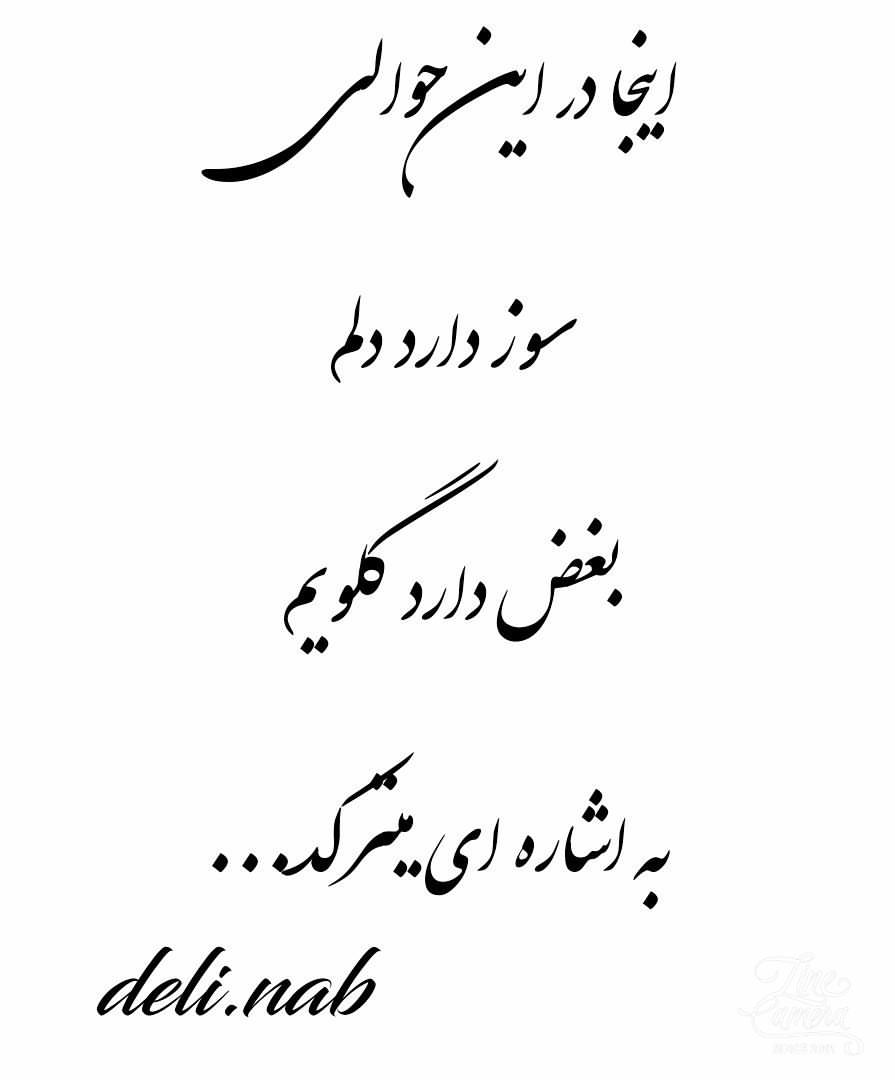 اینجا در این حوالی
سوز دارد دلم
بغض دارد گلویم
به اشاره ای میترکد...
deli.nab
Fine
Camera